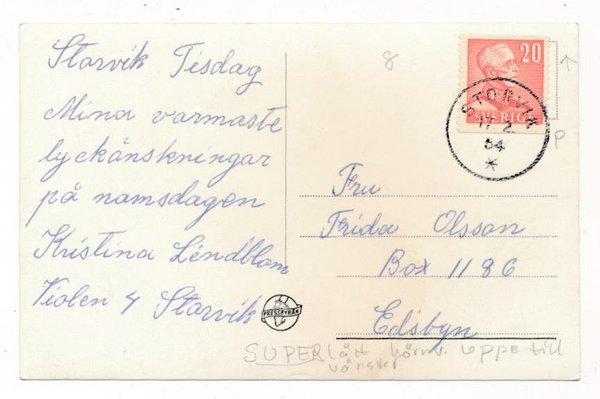 Storvik Tisdag
Mina varmaste
lyckönskningar
på namsdagen
Kristina Lendblom
Violen 4 Storvik
PRESSBYRÅN
8
20
SVERIGE
STORVIK
17. 2.
54
*
P
Fru
Frida Olsson
Box 1186
Edsbyn
SUPER lätt hörnv. uppe till
vänster